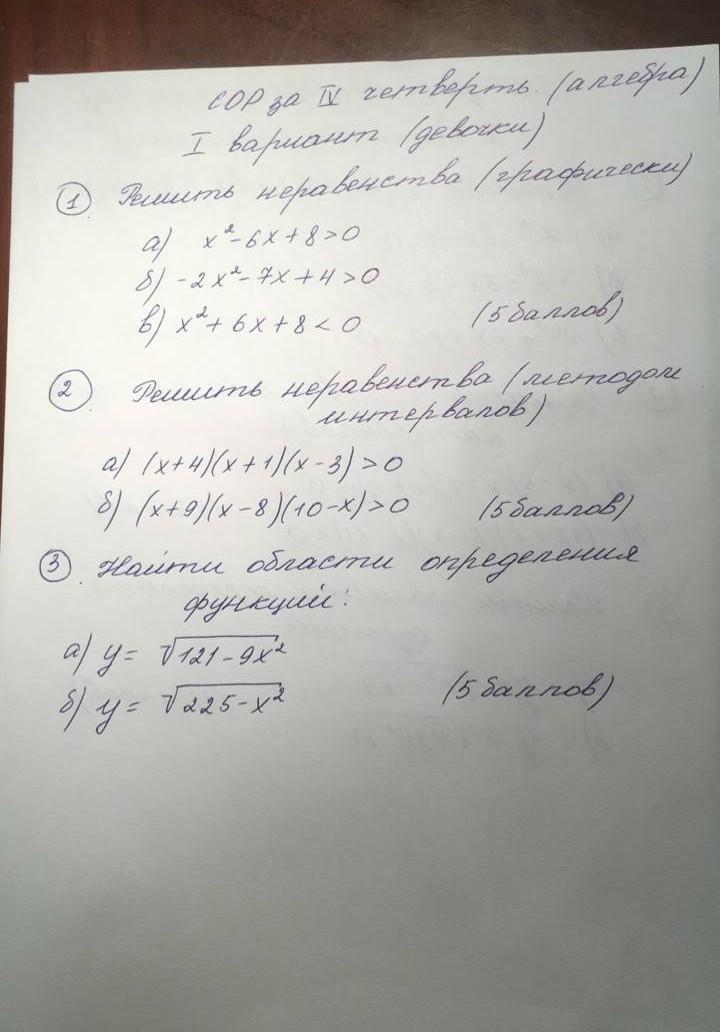 СОР за IV четверть. (алгебра)
I вариант (девочки)
1 Решить неравенства (графически)
а) x²-6x+8>0
б) -2x²-7x+4>0
в) x²+6x+8<0 (5 баллов)
2 Решить неравенства (методом
интервалов)
а) (x+4)(x+1)(x-3)>0
б) (x+9)(x-8)(10-x)>0 (5 баллов)
3 Найти области определения
функций:
а) y= √121-9x²
б) y= √225-x² (5 баллов)